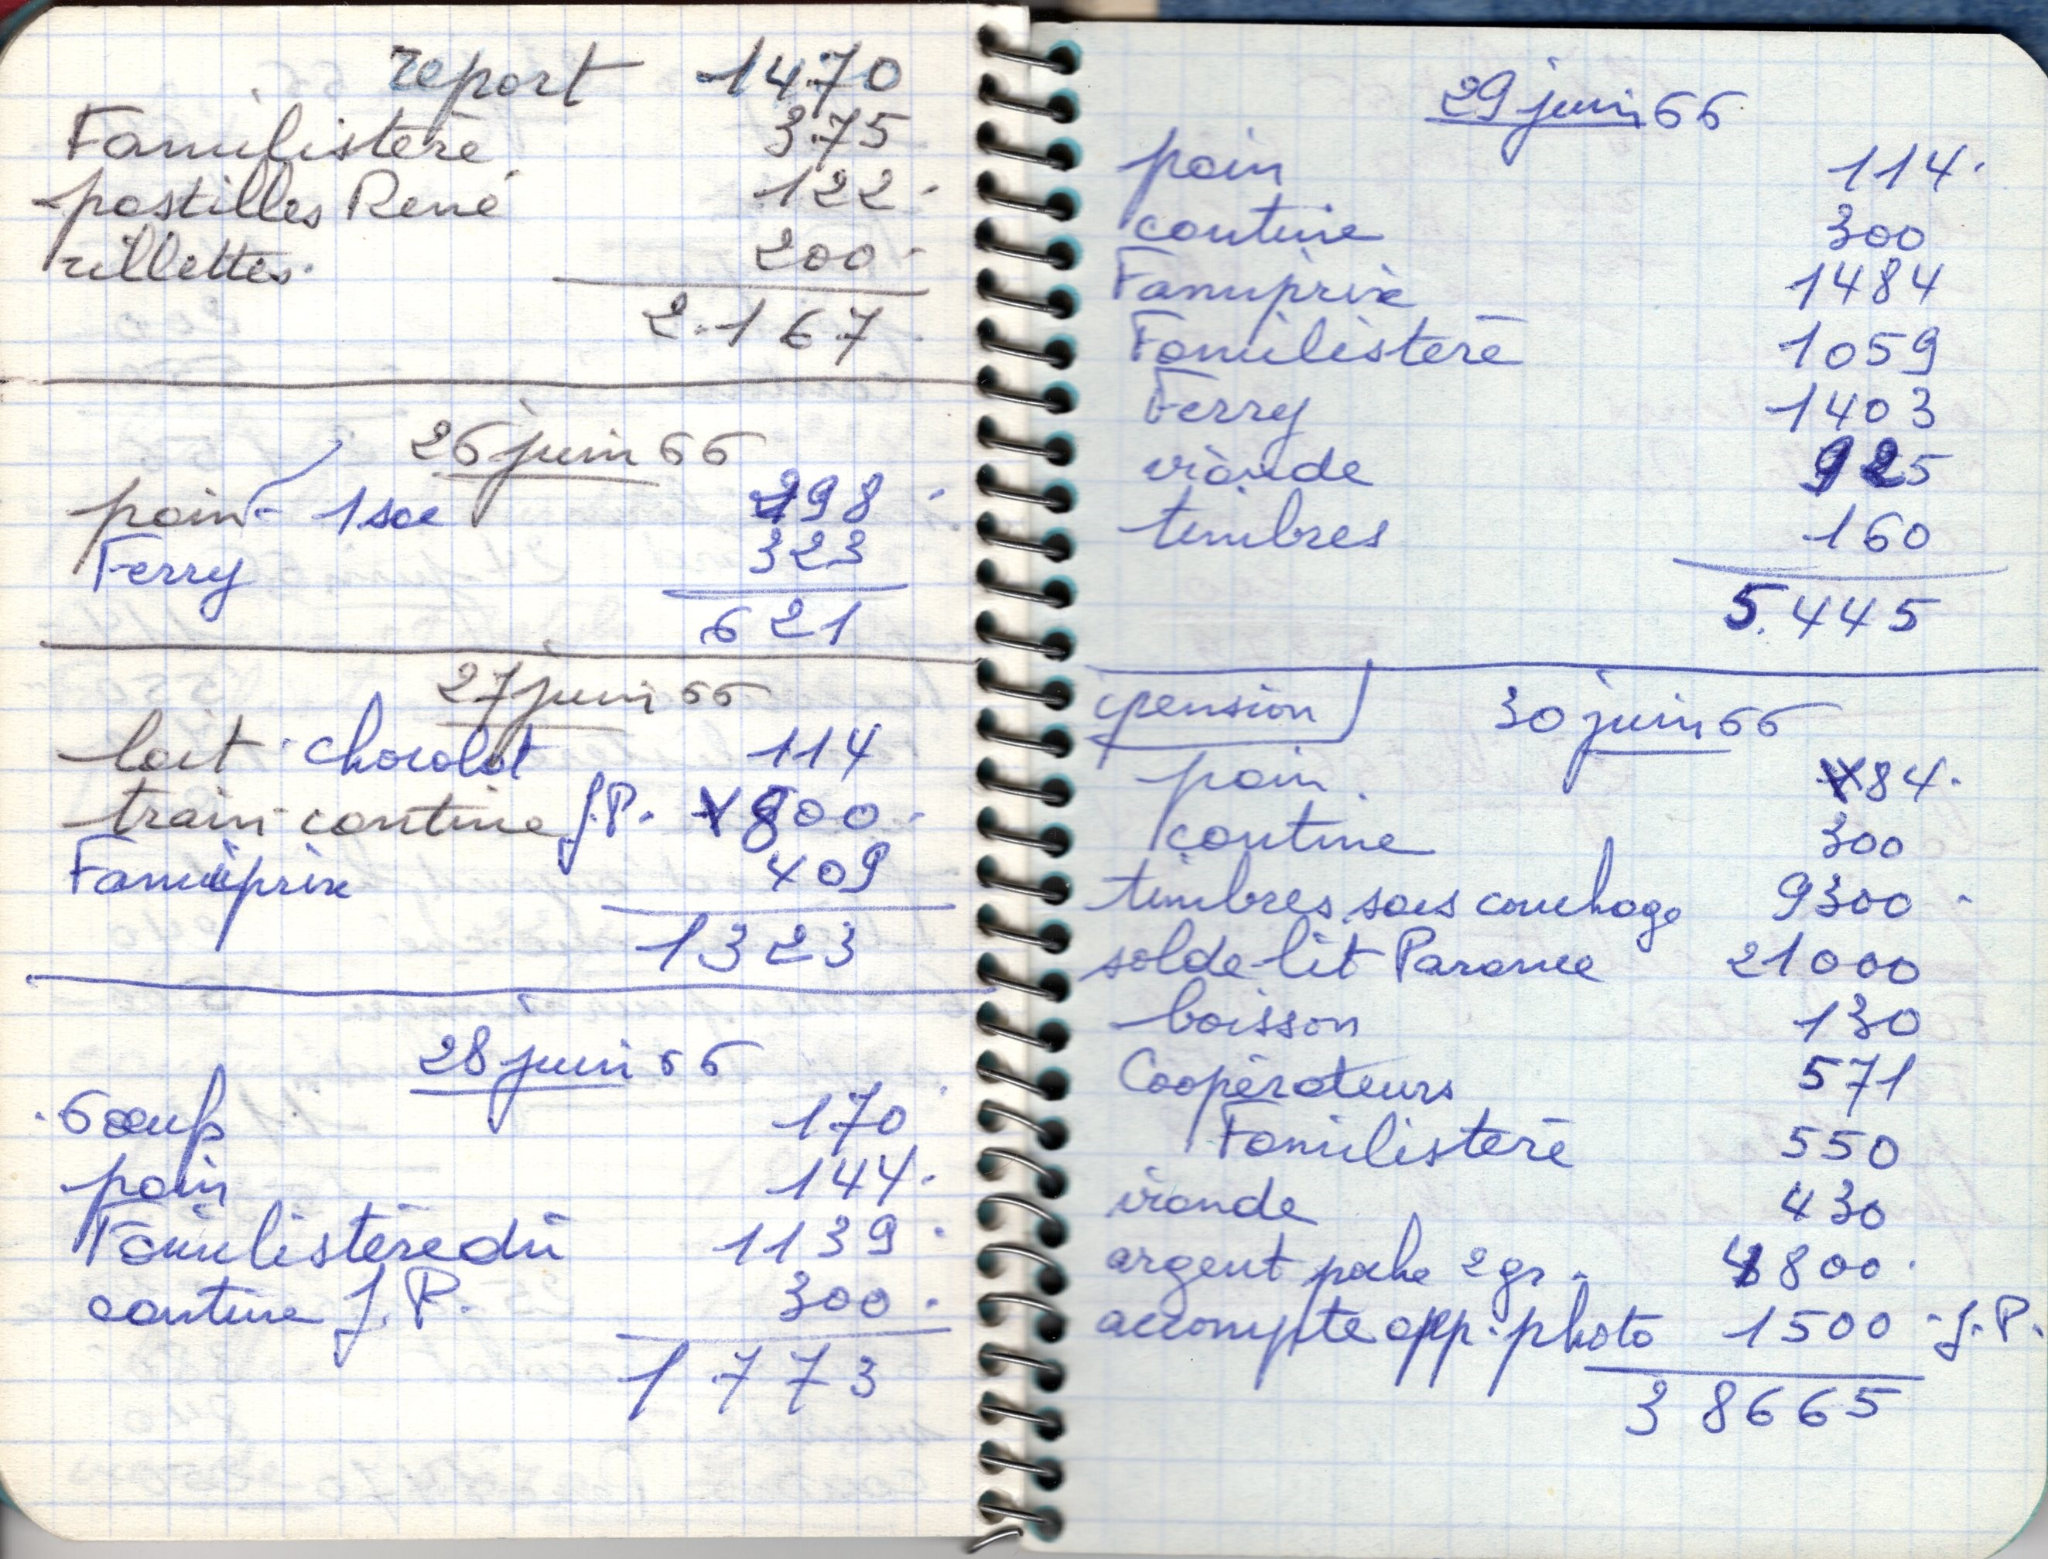 report 1470
Familistère 375
pastilles René 122.
rillettes. 200.
2.167
26 juin 66
pain - 1 sac 298.
Ferry 323
621
27 juin 66
lait chocolat 114
train cantine J.P. 800.
Famiprix 409
1323
28 juin 66
6 œufs 170
pain 144.
Familistère dû 1139.
cantine J.P. 300.
1773
29 juin 66
pain 114.
cantine 300
Famiprix 1484
Familistère 1059
Ferry 1403
viande 925
timbres 160
5.445
pension 30 juin 66
pain 84.
cantine 300
timbres sacs couchage 9300
solde lit 21000
boisson 130
Coopérateurs 571
Familistère 550
viande 430
argent poche 2 gr. 4800.
accompte app. photo 1500 - J.P.
38665